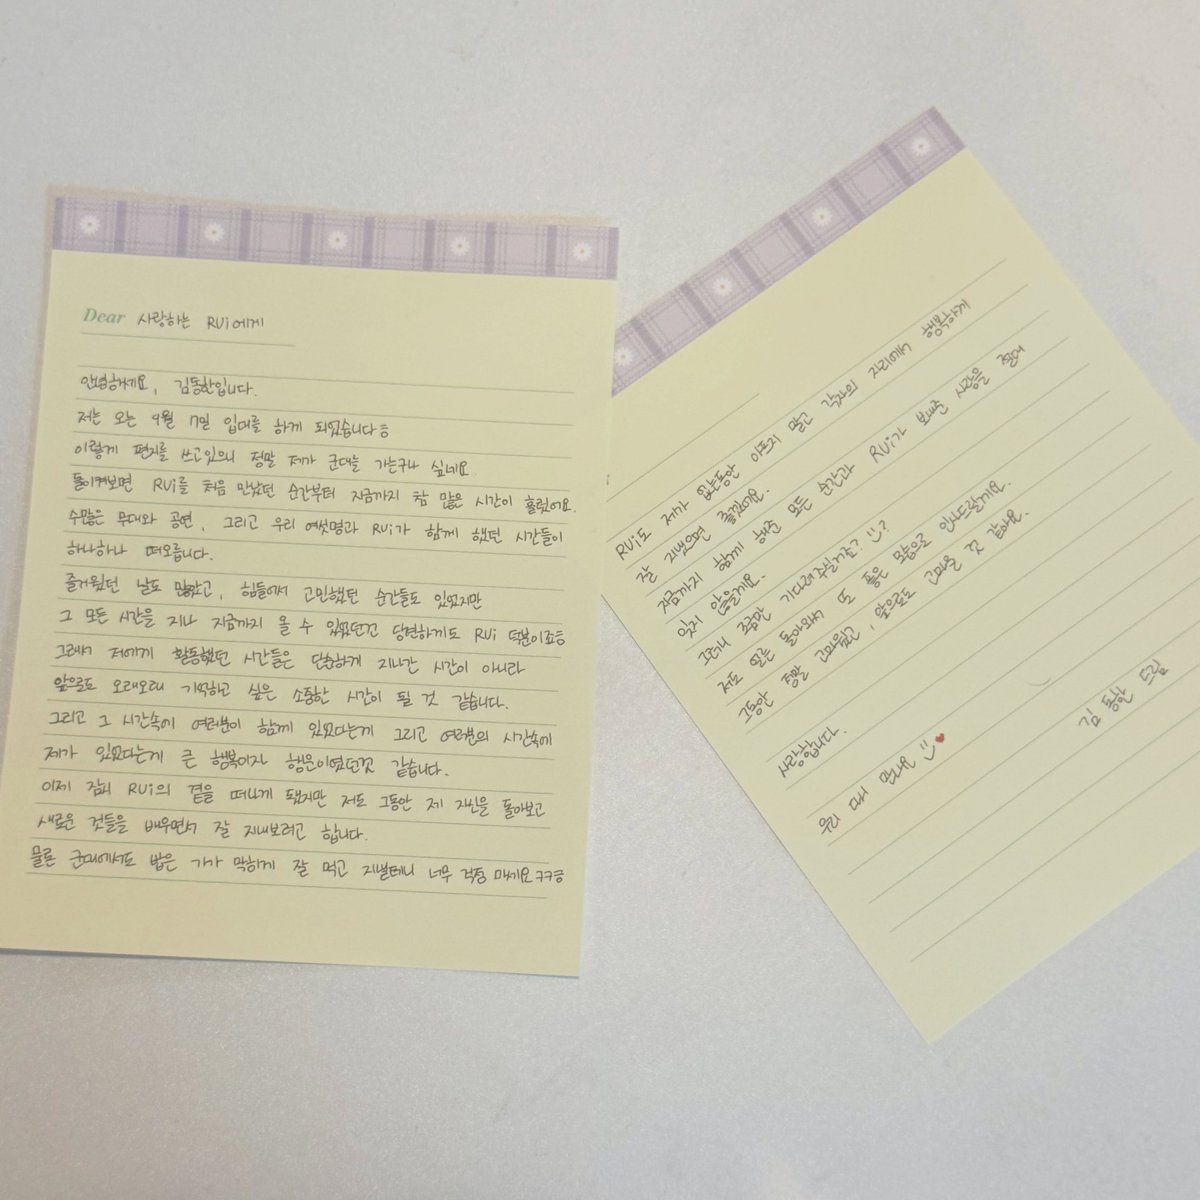 Dear 사랑하는 RUi에게
안녕하세요, 김동한입니다.
저는 오는 9월 7일 입대를 하게 되었습니다ㅎ
이렇게 편지를 쓰고있으니 정말 제가 군대를 가는구나 싶네요.
돌이켜보면 RUi를 처음 만났던 순간부터 지금까지 참 많은 시간이 흘렀어요.
수많은 무대와 공연, 그리고 우리 여섯명과 RUi가 함께 했던 시간들이
하나하나 떠오릅니다.
즐거웠던 날도 많았고, 힘들어서 고민했던 순간들도 있었지만
그 모든 시간을 지나 지금까지 올 수 있었던건 당연하게도 RUi 덕분이죠ㅎ
그래서 저에게 활동했던 시간들은 단순하게 지나간 시간이 아니라
앞으로도 오래오래 기억하고 싶은 소중한 시간이 될 것 같습니다.
그리고 그 시간속에 여러분이 함께 있었다는게 그리고 여러분의 시간속에
제가 있었다는게 큰 행복이자 행운이었던것 같습니다.
이제 잠시 RUi의 곁을 떠나게 됐지만 저도 그동안 제 자신을 돌아보고
새로운 것들을 배우면서 잘 지내보려고 합니다.
물론 군대에서도 밥은 기가 막히게 잘 먹고 지낼테니 너무 걱정 마세요ㅋㅋㅎ
RUi도 제가 없는동안 아프지 말고 각자의 자리에서 행복하게
잘 지냈으면 좋겠어요.
지금까지 함께 해준 모든 순간과 RUi가 보내준 사랑을 절대
잊지 않을게요.
그러니 조금만 기다려주실거죠? :)?
저도 얼른 돌아와서 또 좋은 모습으로 인사드릴게요.
그동안 정말 고마웠고, 앞으로도 고마울 것 같아요.
사랑합니다.
우리 다시 만나요 :) ♥
김동한 드림